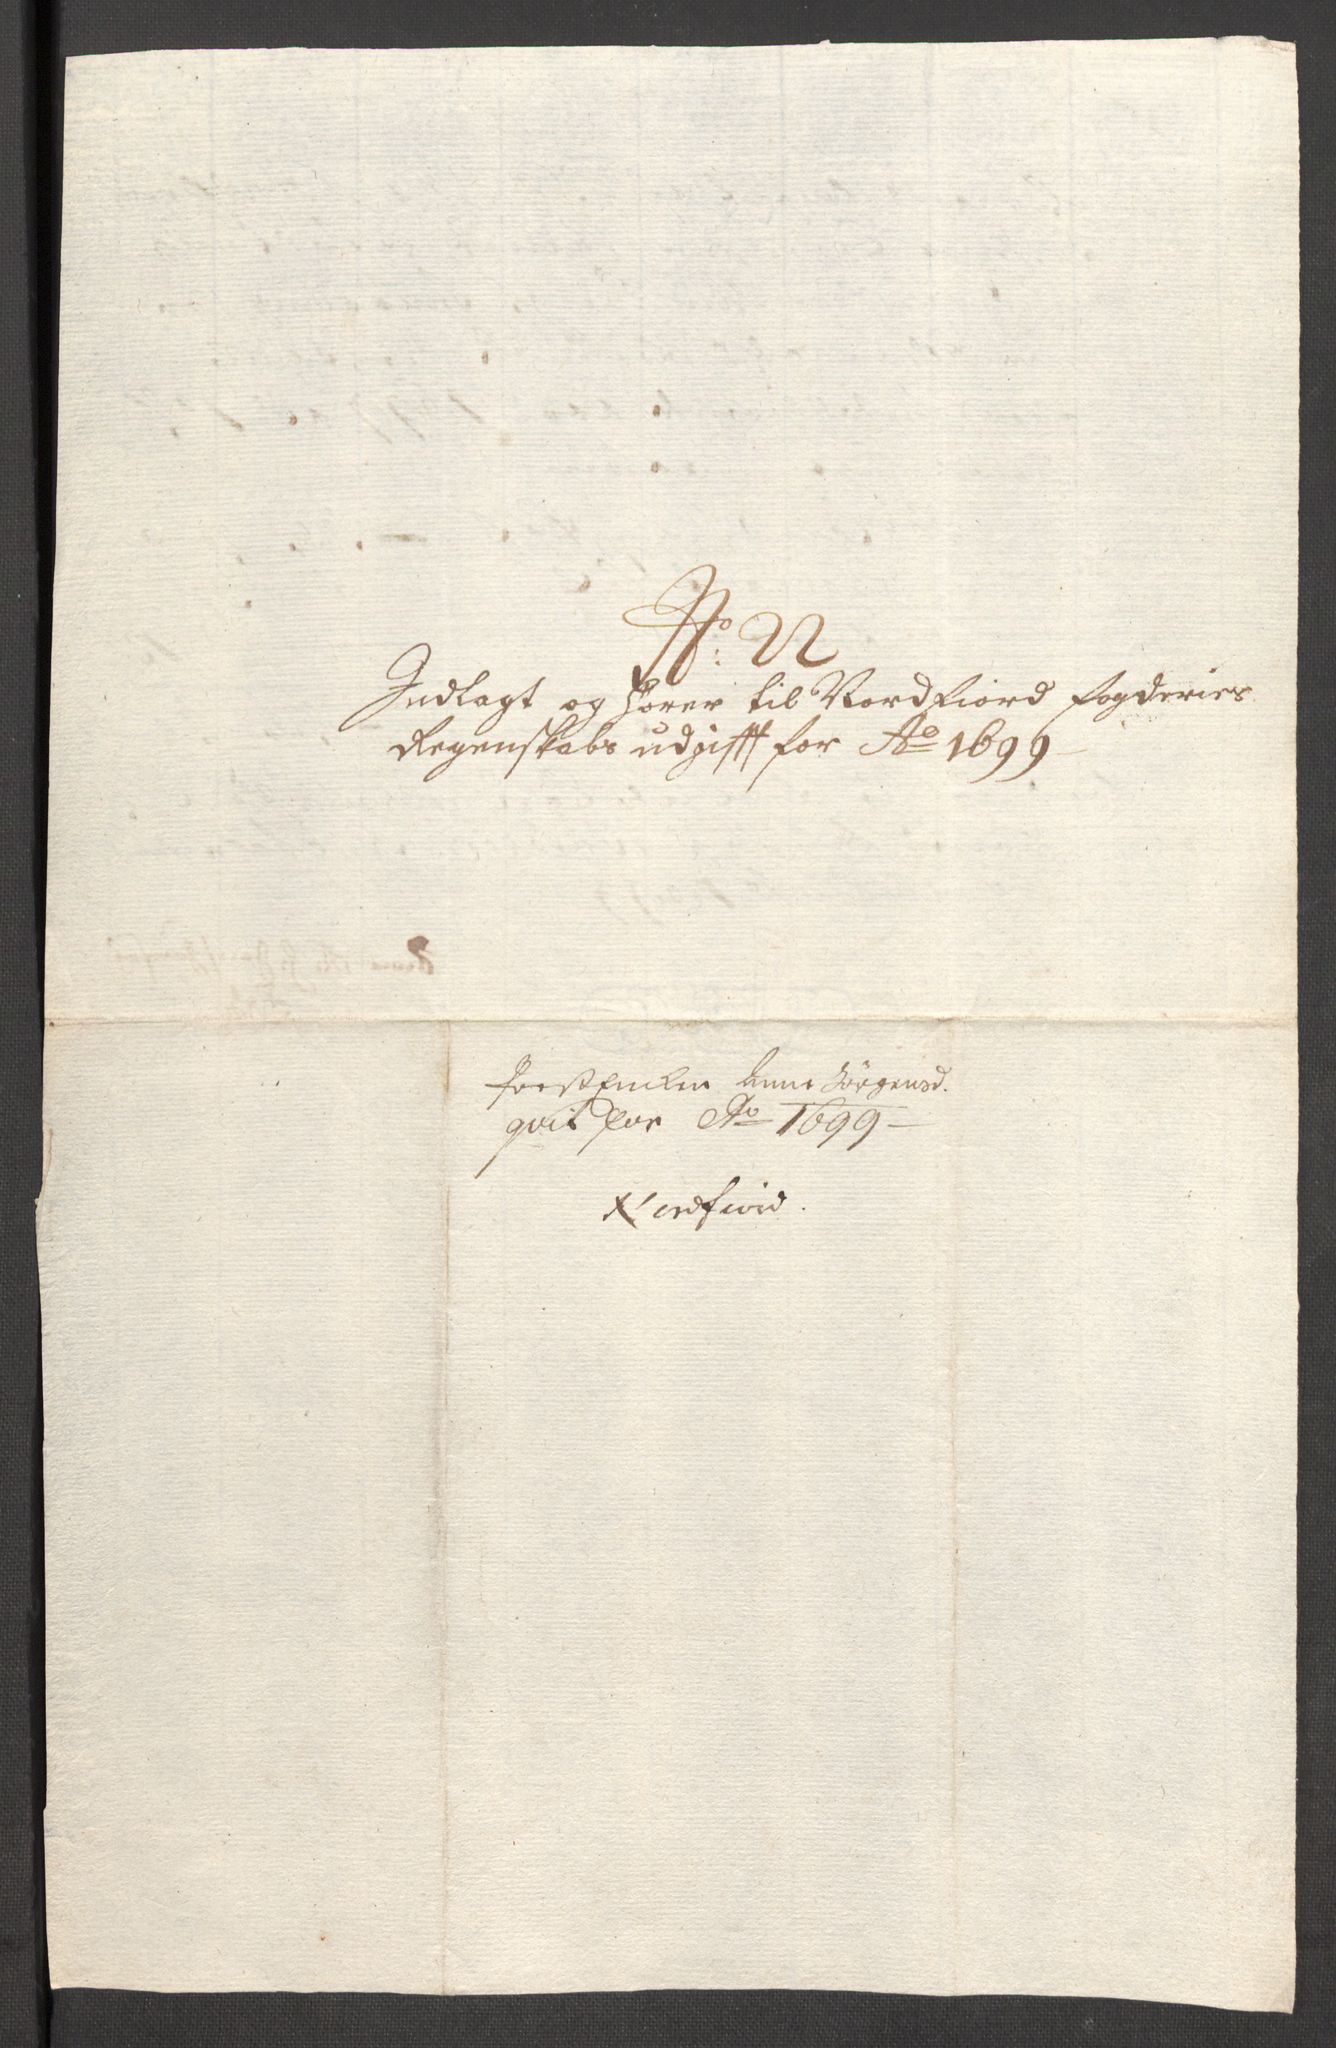 No: 22
Indlagt og hører til Nordfiord fogderies
Regenskabs udgifft for Ao 1699
Anne Jørgensd.
qvit for Ao 1699
Nordfiord.